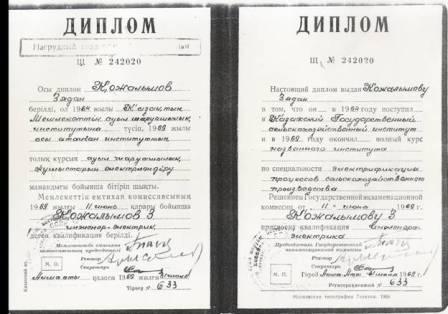 ДИПЛОМ
Нагрудный знак
Щ № 242020
Осы диплом Кожалымов
Зядан
берілді, ол 1964 жылы Казактың
Мемлекеттік ауыл шаруашылық
институтына түсіп, 1969 жылы
осы аталған институттың
толық курсын ауыл шаруашылық
жұмыстарын электрлендіру
мамандығы бойынша бітіріп шықты.
Мемлекеттік емтихан комиссиясының
1969 жылғы 11 июнь қарары бойынша
Кожалымов З
инженер-электрик
деген квалификация берілді.
Ректор
Секретарь
М. О.
Алматы қаласы 1969 жылғы
Тіркеу № 633
ДИПЛОМ
Щ № 242020
Настоящий диплом выдан Кожалымову
Зядан
в том, что он в 1964 году поступил
в Казахский Государственный
сельскохозяйственный институт
и в 1969 году окончил полный курс
названного института
по специальности электрификация
процессов сельскохозяйственного
производства
Решением Государственной экзаменационной
комиссии от 11 июня 1969 г.
Кожалымову З
присвоена квалификация инженера-
электрика
Председатель Государственной
экзаменационной комиссии
Ректор
Секретарь
М. П.
Город Алма-Ата 1969 г.
Регистрационный № 633
Московская типография Гознака. 1968